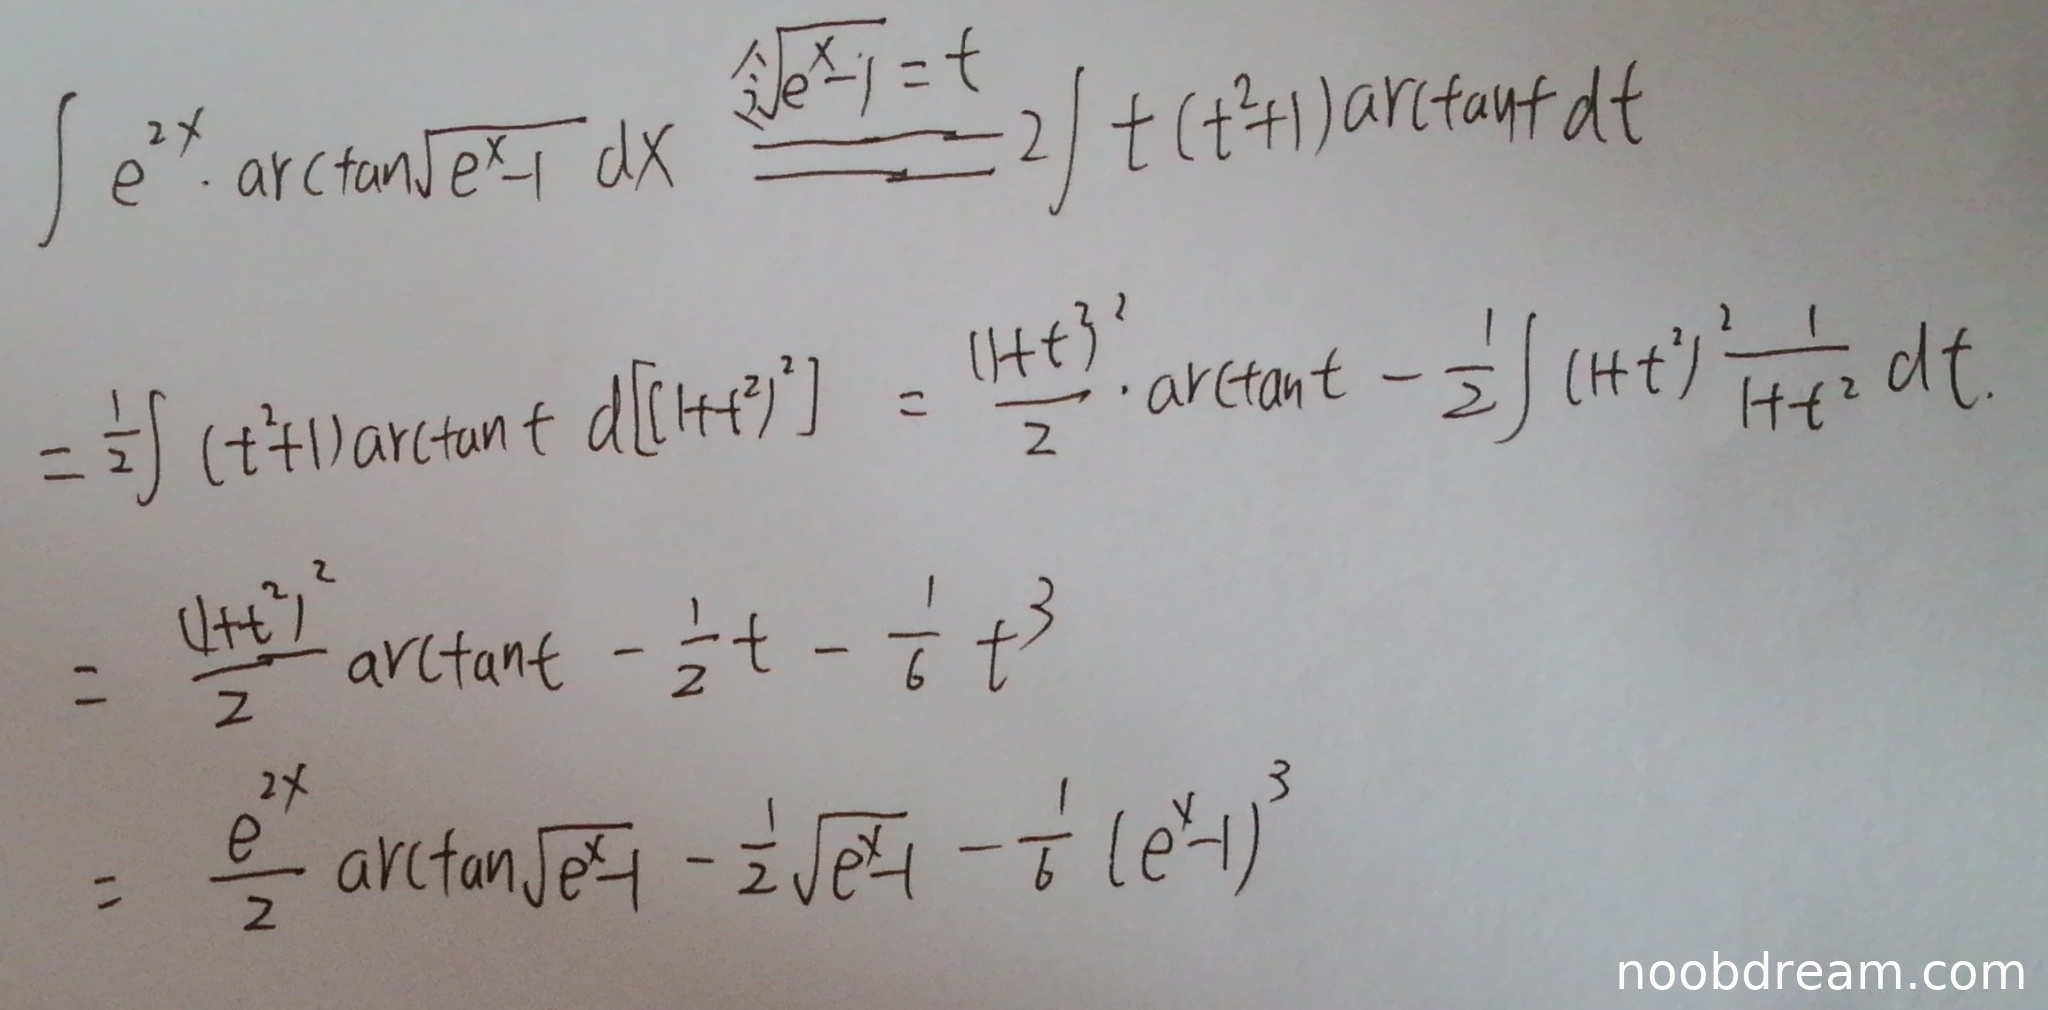 ∫ e^{2x} · arctan√(e^x-1) dx  令√(e^x-1) = t  = 2∫ t(t²+1) arctant dt
= 1/2 ∫ (t²+1) arctant d[(1+t²)²] = (1+t²)²/2 · arctant - 1/2 ∫ (1+t²)² 1/(1+t²) dt.
= (1+t²)²/2 arctant - 1/2 t - 1/6 t³
= e^{2x}/2 arctan√(e^x-1) - 1/2 √(e^x-1) - 1/6 (e^x-1)³
noobdream.com